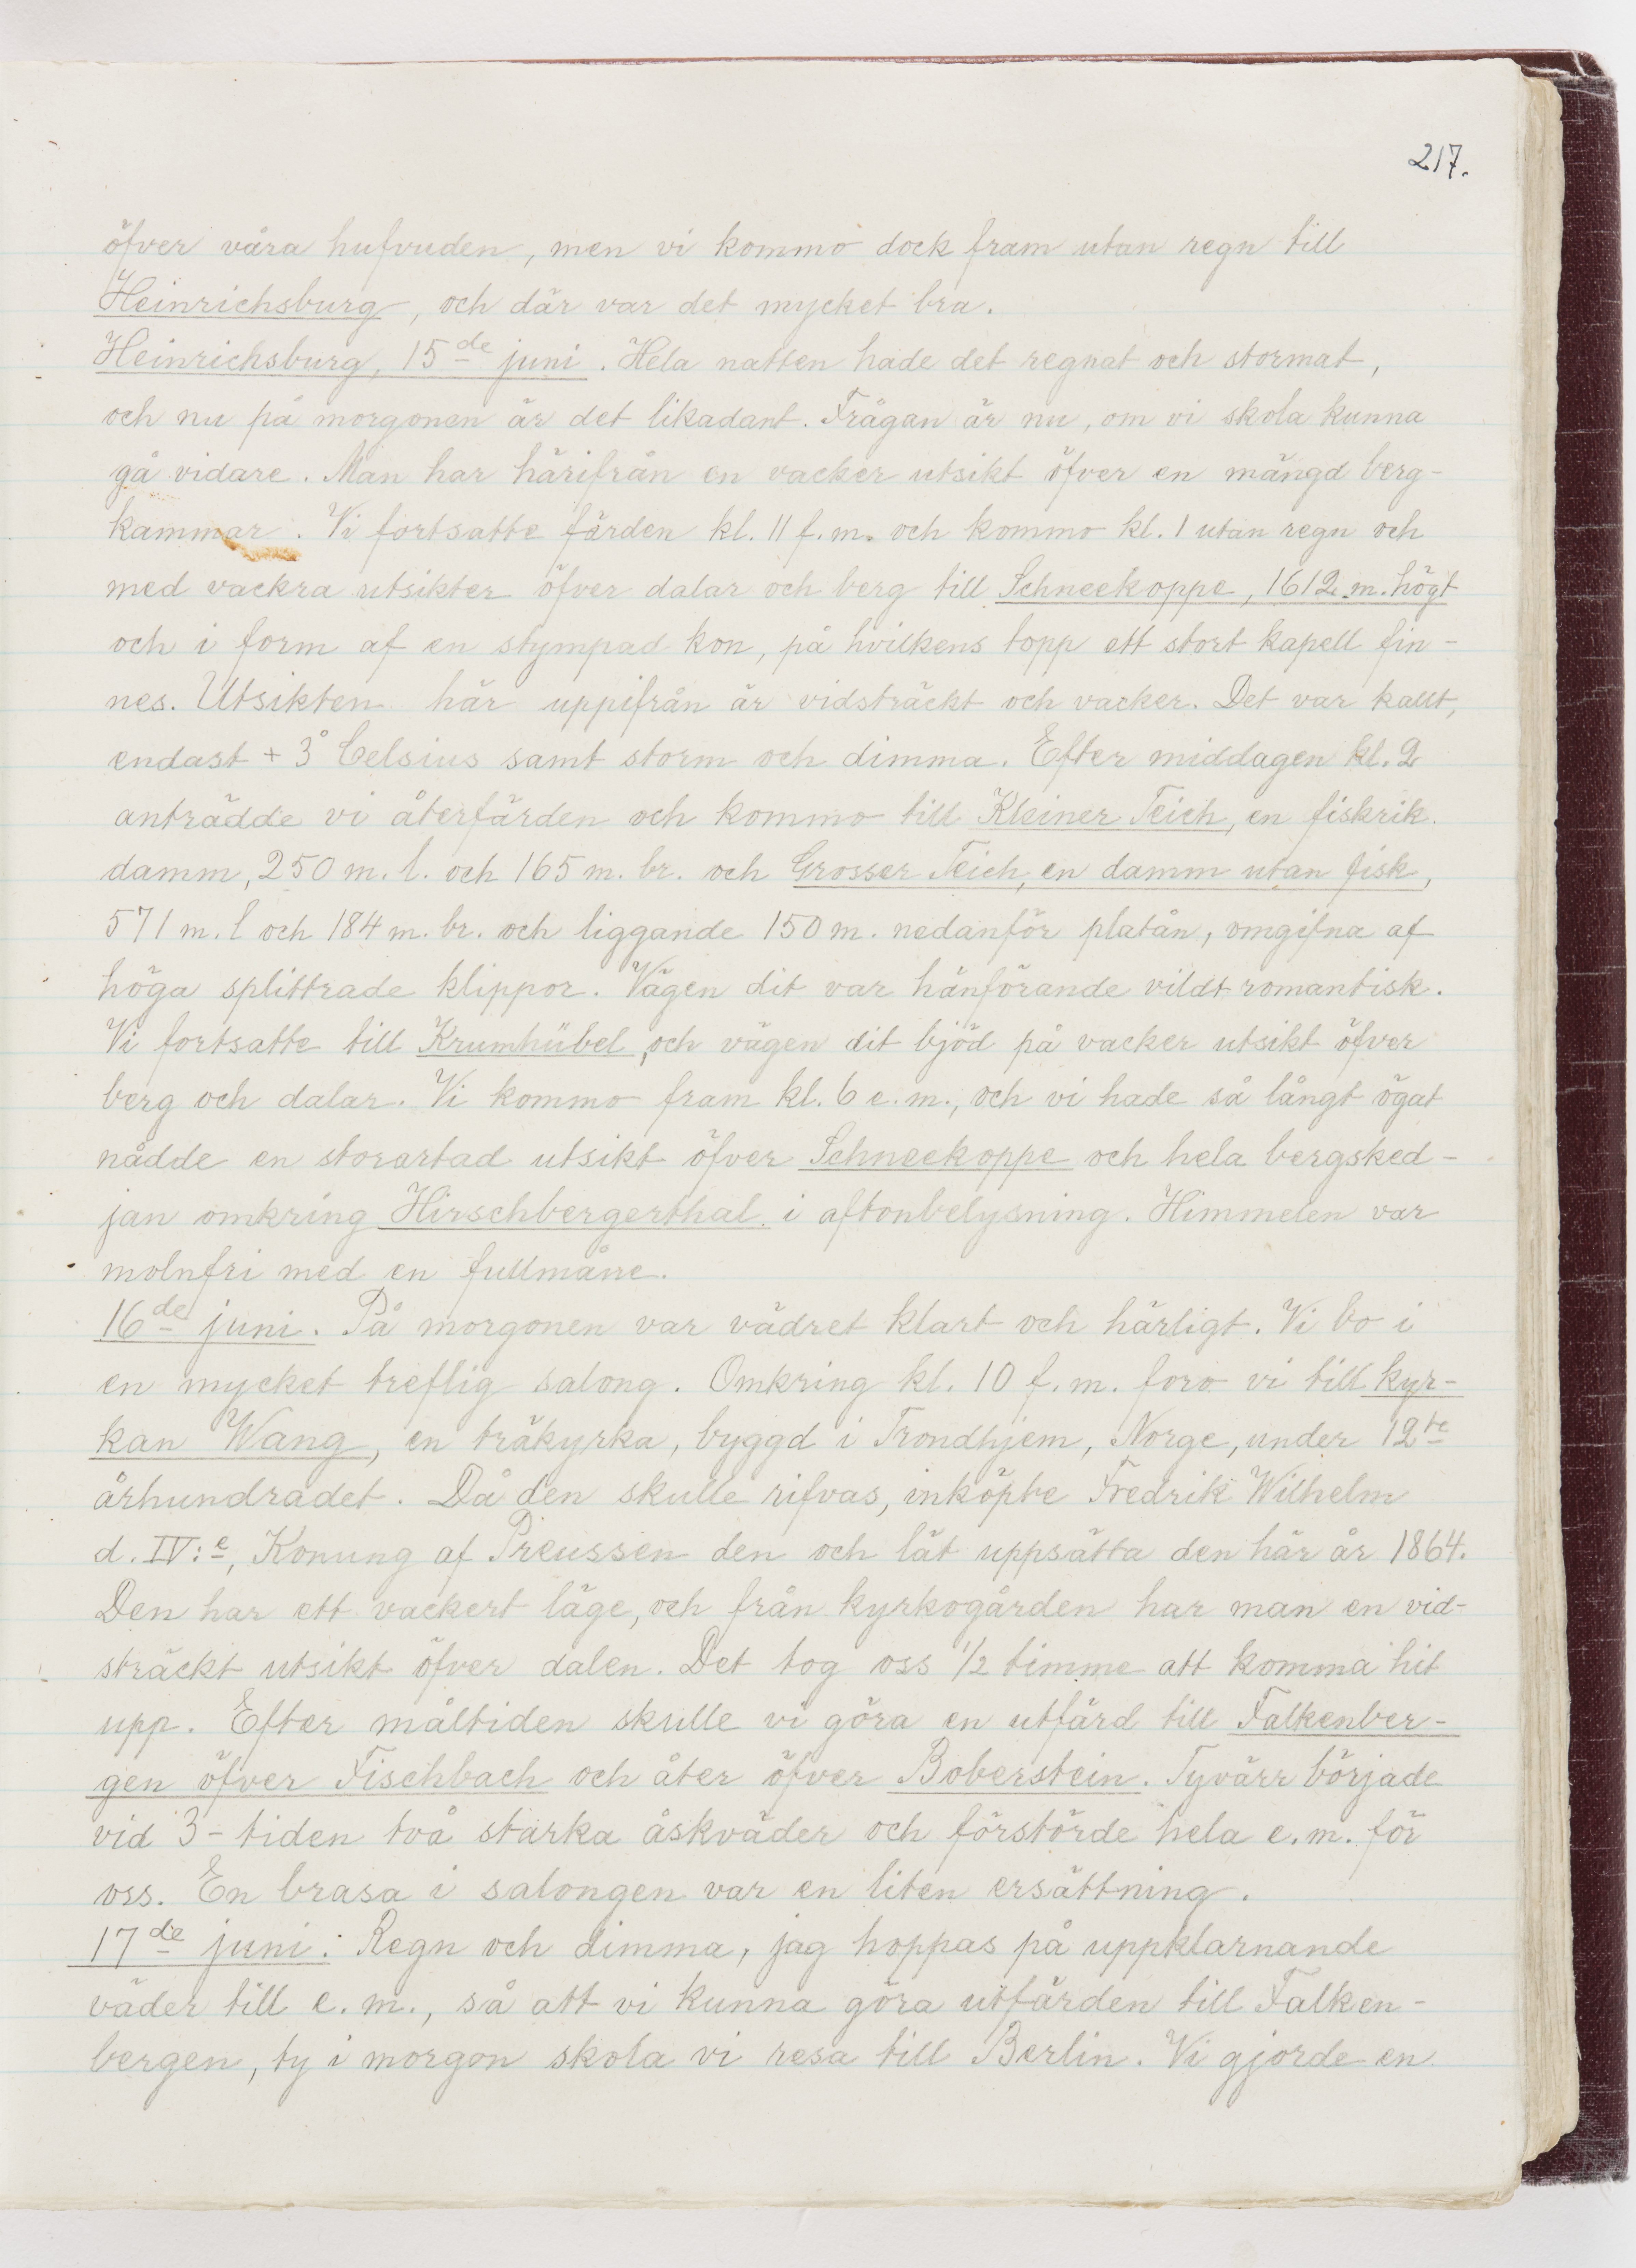 217.
öfver våra hufvuden, men vi kommo dock fram utan regn till
Heinrichsburg, och där var det mycket bra.
Heinrichsburg, 15de juni. Hela natten hade det regnat och stormat,
och nu på morgonen är det likadant. Frågan är nu, om vi skola kunna
gå vidare. Man har härifrån en vacker utsikt öfver en mängd berg-
kammar. Vi fortsatte färden kl. 11 f.m. och kommo kl. 1 utan regn och
med vackra utsikter öfver dalar och berg till Schneekoppe, 1612 m. högt
och i form af en stympad kon, på hvilkens topp ett stort kapell fin-
nes. Utsikten här uppifrån är vidsträckt och vacker. Det var kallt,
endast + 3° Celsius samt storm och dimma. Efter middagen kl. 2
anträdde vi återfärden och kommo till Kleiner Teich, en fiskrik
damm, 250 m. l. och 165 m. br. och Grosser Teich, en damm utan fisk,
571 m. l och 184 m. br. och liggande 150 m. nedanför platån, omgifna af
höga splittrade klippor. Vägen dit var hänförande vildt romantisk.
Vi fortsatte till Krumhübel, och vägen dit bjöd på vacker utsikt öfver
berg och dalar. Vi kommo fram kl. 6 e.m., och vi hade så långt ögat
nådde en storartad utsikt öfver Schneekoppe och hela bergsked-
jan omkring Hirschbergerthal i aftonbelysning. Himmelen var
molnfri med en fullmåne.
16de juni. På morgonen var vädret klart och härligt. Vi bo i
en mycket treflig salong. Omkring kl. 10 f.m. foro vi till kyr-
kan Wang, en träkyrka, byggd i Trondhjem, Norge, under 12te
århundradet. Då den skulle rifvas, inköpte Fredrik Wilhelm
d. IV:e, Konung af Preussen den och lät uppsätta den här år 1864.
Den har ett vackert läge, och från kyrkogården har man en vid-
sträckt utsikt öfver dalen. Det tog oss 1/2 timme att komma hit
upp. Efter måltiden skulle vi göra en utfärd till Falkenber-
gen öfver Fischbach och åter öfver Boberstein. Tyvärr började
vid 3-tiden två starka åskväder och förstörde hela e.m. för
oss. En brasa i salongen var en liten ersättning.
17de juni: Regn och dimma, jag hoppas på uppklarnande
väder till e.m., så att vi kunna göra utfärden till Falken-
bergen, ty i morgon skola vi resa till Berlin. Vi gjorde en